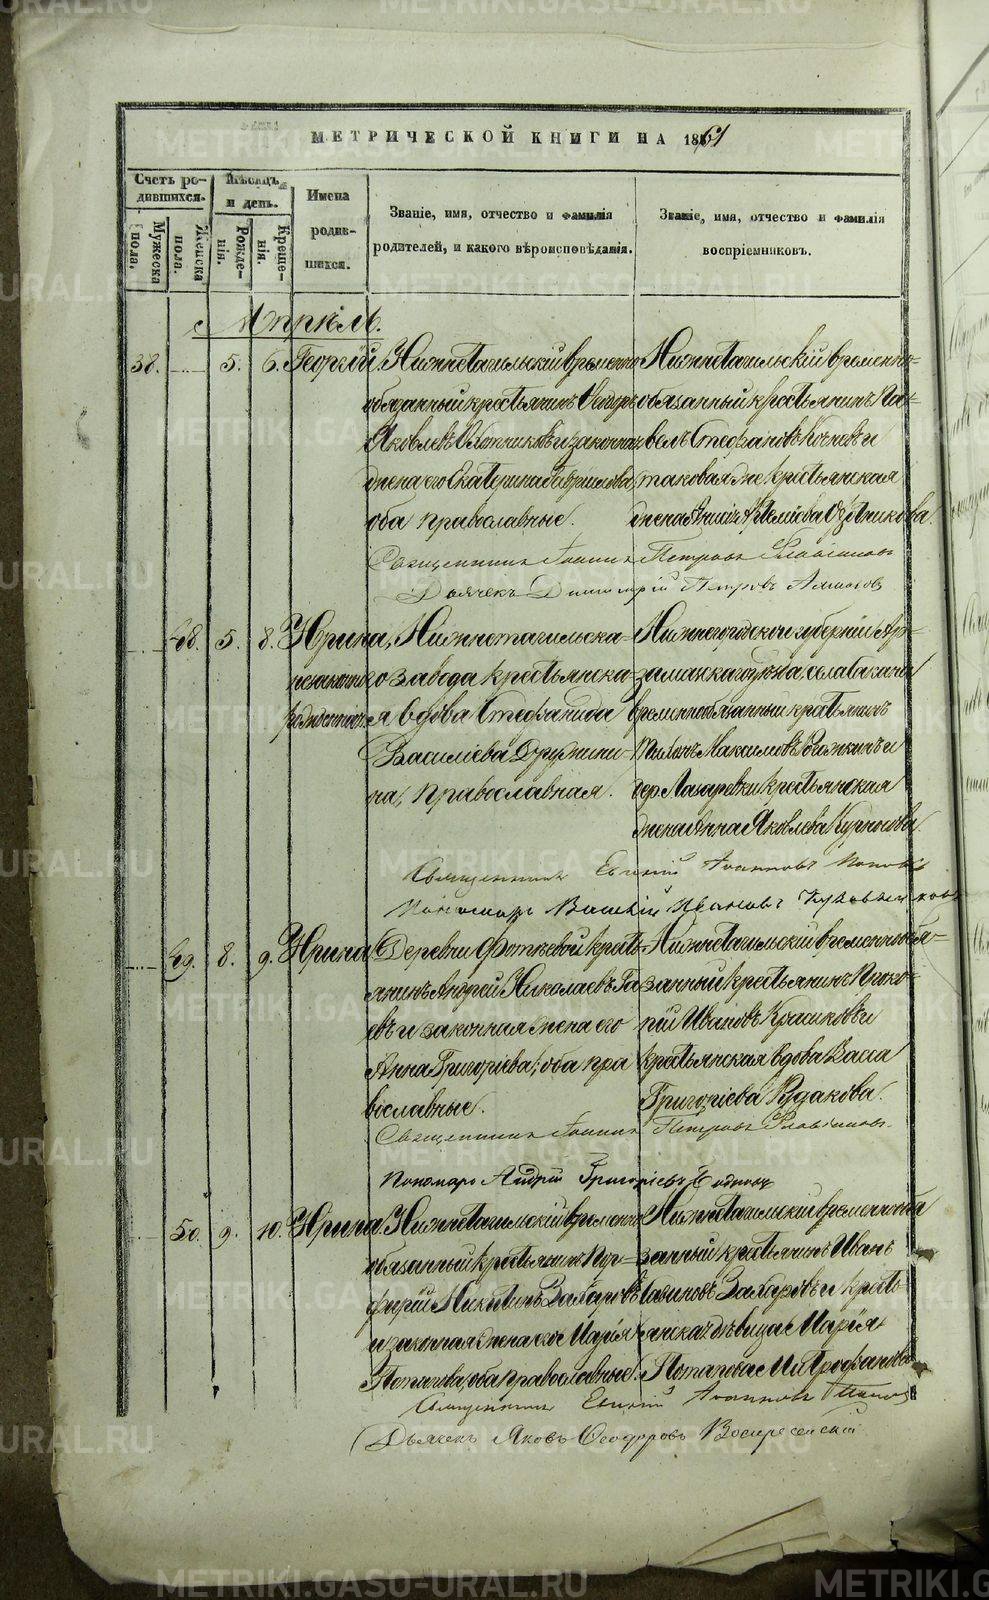 METRIKI.GASO-URAL.RU
МЕТРИЧЕСКОЙ КНИГИ НА 1861
Счетъ родившихся.
Мужеска пола.
Женска пола.
Мѣсяцъ и день.
Рожденія.
Крещенія.
Имена родившихся.
Званіе, имя, отчество и фамилія
родителей, и какого вѣроисповѣданія.
Званіе, имя, отчество и фамилія
воспріемниковъ.
Апрѣль.
38. 5. 6. Георгій
Нижнетагильскій временно-
обязанный крестьянинъ
Яковлевъ и законная
жена его Екатерина Гаврилова,
оба православные.
Нижнетагильскій временно-
обязанный крестьянинъ Па-
велъ Стефановъ и
таковая же крестьянская
жена Артеміева
Священникъ Іоаннъ Петровъ Флавіановъ
Дьячекъ Димитрій Петровъ
48. 5. 8. Ирина,
незаконно
рожденная
Нижнетагильска-
го завода крестьянска-
я вдова Стефанида
Василіева Дружини-
на, православная.
Нижегородской губерніи Ар-
замаскаго уѣзда, села
временнообязанный крестьянинъ
Максимовъ и
дер. Лазаревки крестьянская
жена Анна Яковлева Курносова.
Священникъ Евгеній Іоанновъ Поповъ
Пономарь Василій Ивановъ
49. 8. 9. Ирина
Деревни Фотѣевой кресть-
янинъ Андрей Николаевъ Га
евъ и законная жена его
Анна Григоріева; оба пра
вославные.
Нижнетагильскій временнообя-
занный крестьянинъ Проко-
пій Ивановъ Красиковъ и
крестьянская вдова Васса
Григоріева Рудакова.
Священникъ Іоаннъ Петровъ Флавіановъ
Пономарь Андрей Григорьевъ
50. 9. 10. Ирина.
Нижнетагильскій временно
обязанный крестьянинъ Пор-
фирій Никитинъ Захаровъ
и законная жена его Марія
Потапова, оба православные.
Нижнетагильскій временнообя
занный крестьянинъ Иванъ
Савиновъ Захаровъ и кресть
янска дѣвица Марія
Потапова Митрофанова
Священникъ Евгеній Іоанновъ Поповъ
Дьячекъ Яковъ Ѳеодоровъ Воскресенскій